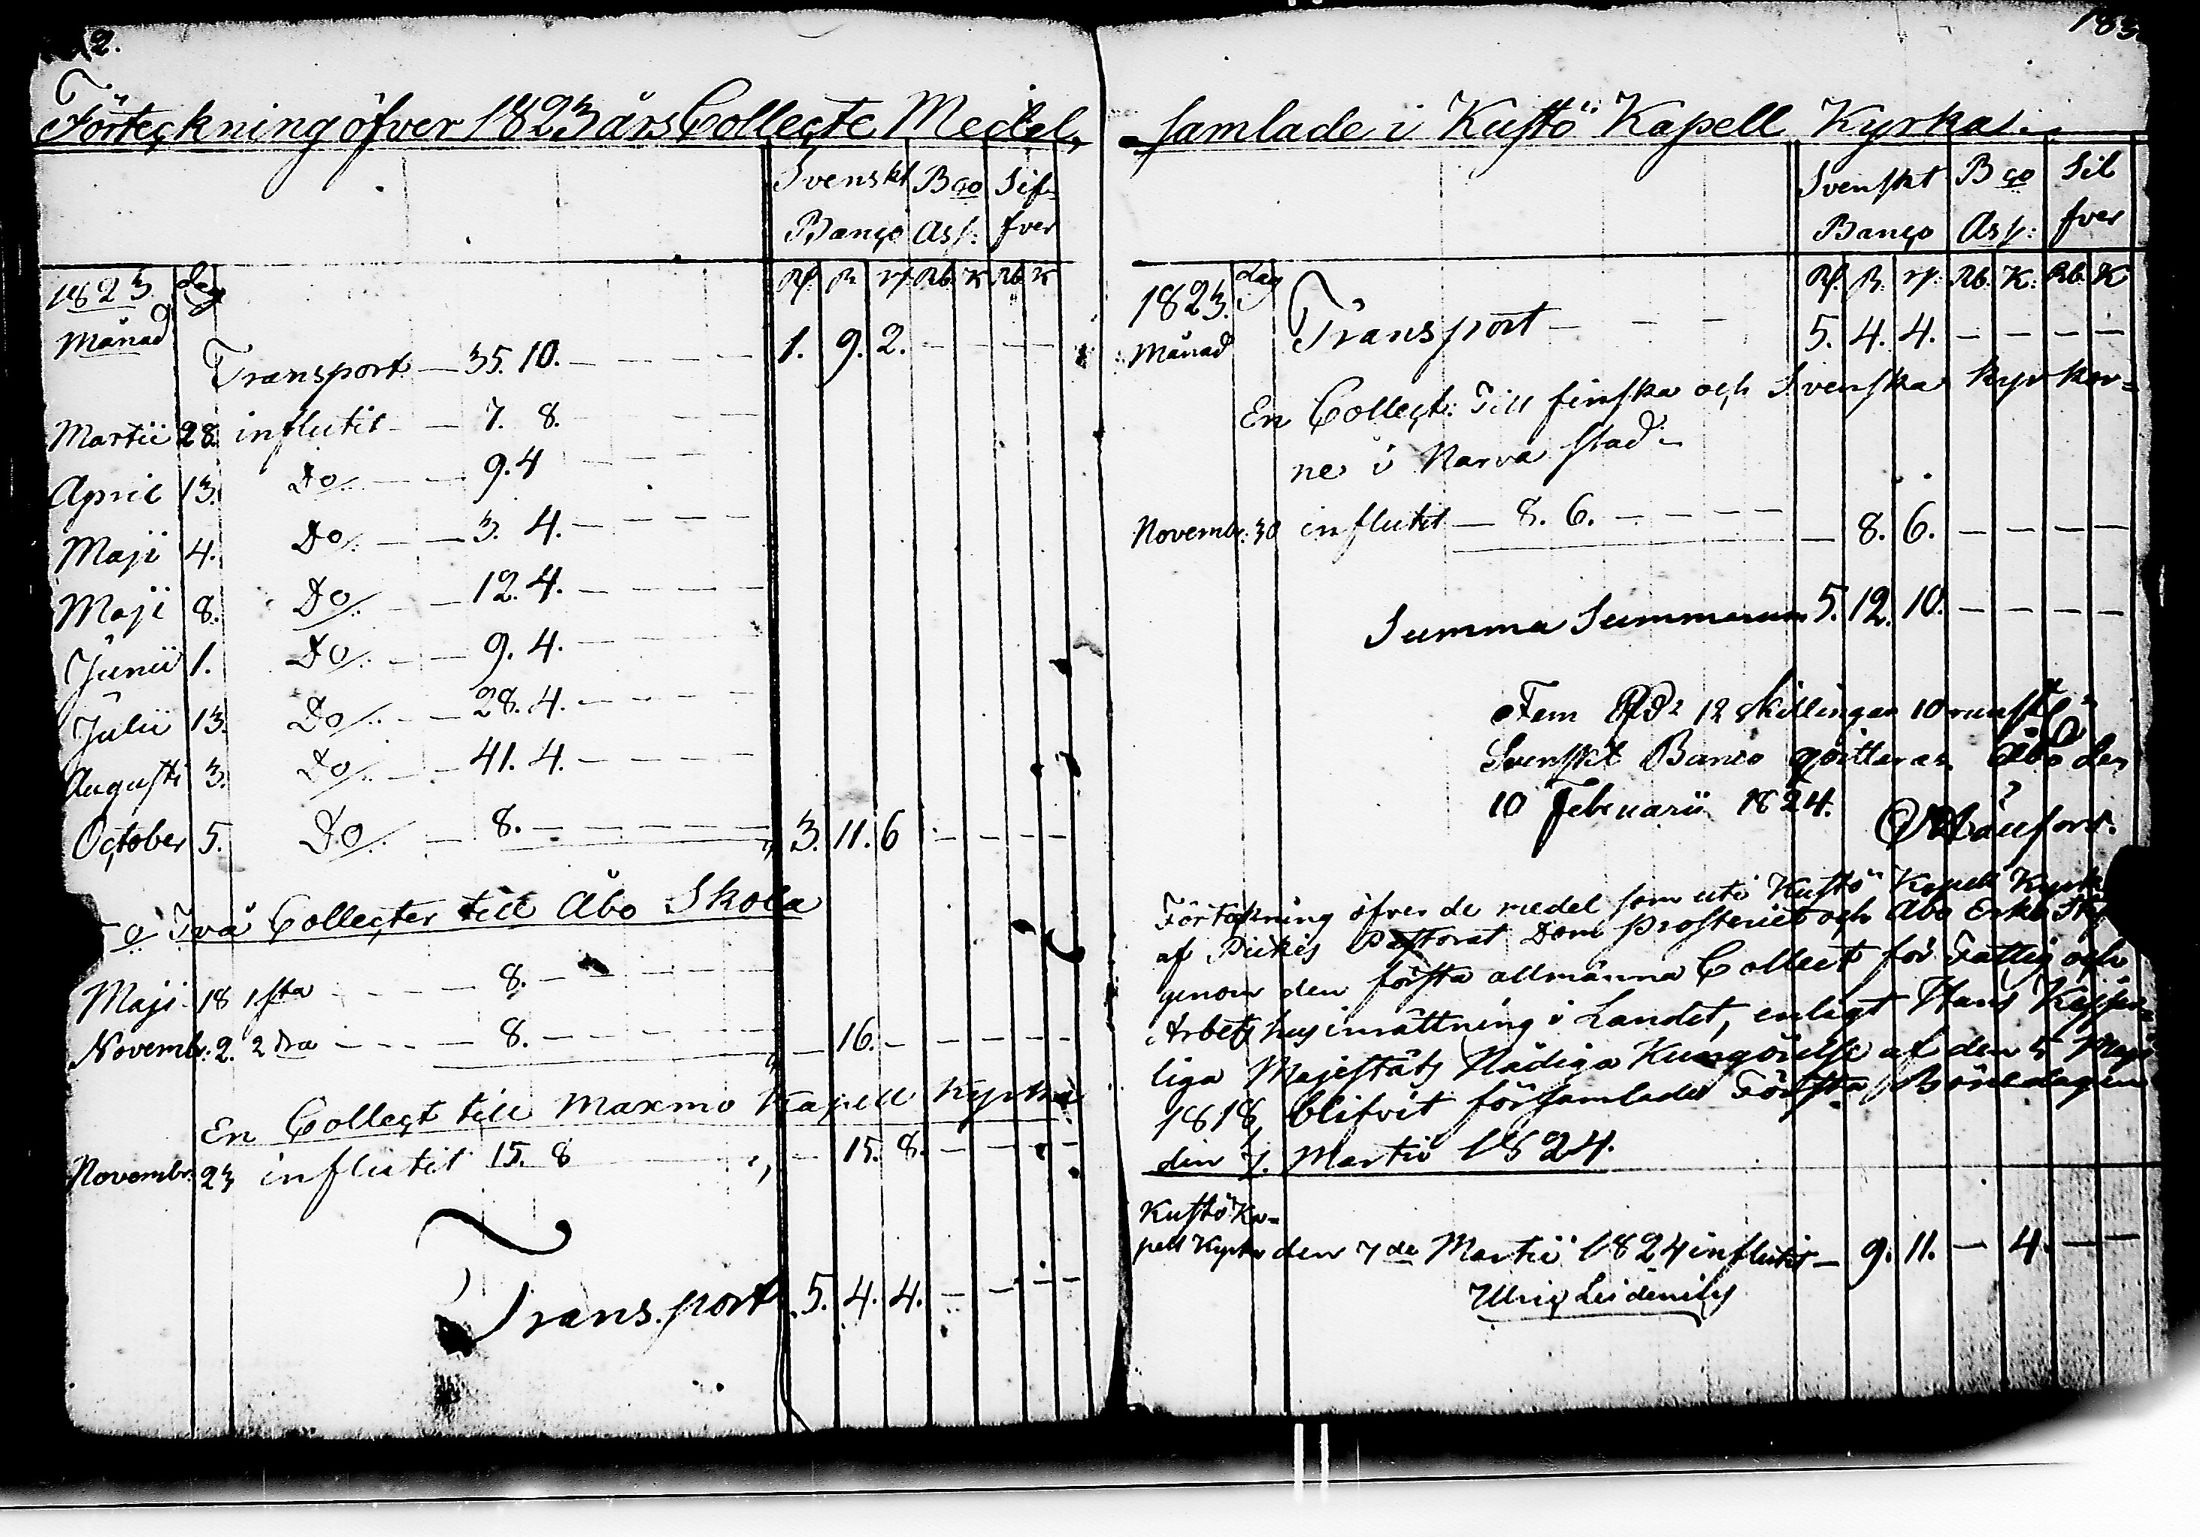 2.
Förteckning öfver 1823 års Collecte Medel,
Svenskt Bco Sif
Banco Ass: fver
1823. dag
Månad
Rd. ß rs. Rb. K Rb K
Transport — 35. 10. — — — — 1. 9. 2. — — — —
Martii 28. influtit — — 7. 8. — — — —
April 13. Do/. — — 9. 4 — — — —
Maji 4. Do/. — — 3. 4. — — — —
Maji 8. Do/. — — 12. 4. — — — —
Junii 1. Do/. — — 9. 4. — — — —
Julii 13. Do/. — — 28. 4. — — — —
Augusti 3. Do/. — — 41. 4. — — — —
October 5. Do/. — 8. — — — — 3. 11. 6 — — — —
Två Collecter till Åbo Skola
Maji 18 1sta — — — 8. — — — —
Novemb. 2. 2dra — — — 8. — — — — 16. — — — — —
En Collect till Maxmo Kapell Kyrka
Novembr. 23 influtit 15. 8 — 15. 8. — — — —
Transport 5. 4. 4. — — — —
183
samlade i Kustö Kapell Kyrka
Svenskt Bco Sil
Banco Ass: fver
1823. dag
Månad
Rd. ß. rs. Rb. K. Rb. K
Transport — — — 5. 4. 4. — — — —
En Collect: Till finska och Svenska Kyrkor=
ne i Narva stad
Novembr. 30 influtit — 8. 6. — — — — 8. 6. — — — —
Summa Summarum 5. 12. 10. — — — —
Fem Rdr 12 skillingar 10 runst.
Svenskt Banco qvitteras Åbo den
10 Februarii 1824.
Förtekning öfver de medel som uti Kustö Kapell Kyrk
af Pickis Pastorat Dom Prosteriet och Åbo Erke
genom den första allmänna Collect för Fattig och
Arbets hus inrättning i Landet, enligt Hans Kejser=
liga Majestäts Nådiga Kungörelse af den 5 Maji
1818, blifvit församlade Första Bönedagen
den 7. Martii 1824.
Kustö Ka=
pell Kyrka den 7de Martii 1824 influtit — 9. 11. — 4. — —